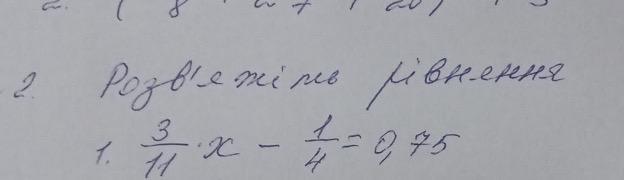 2. Розв'яжіть рівняння
1. 3/11 · x − 1/4 = 0,75